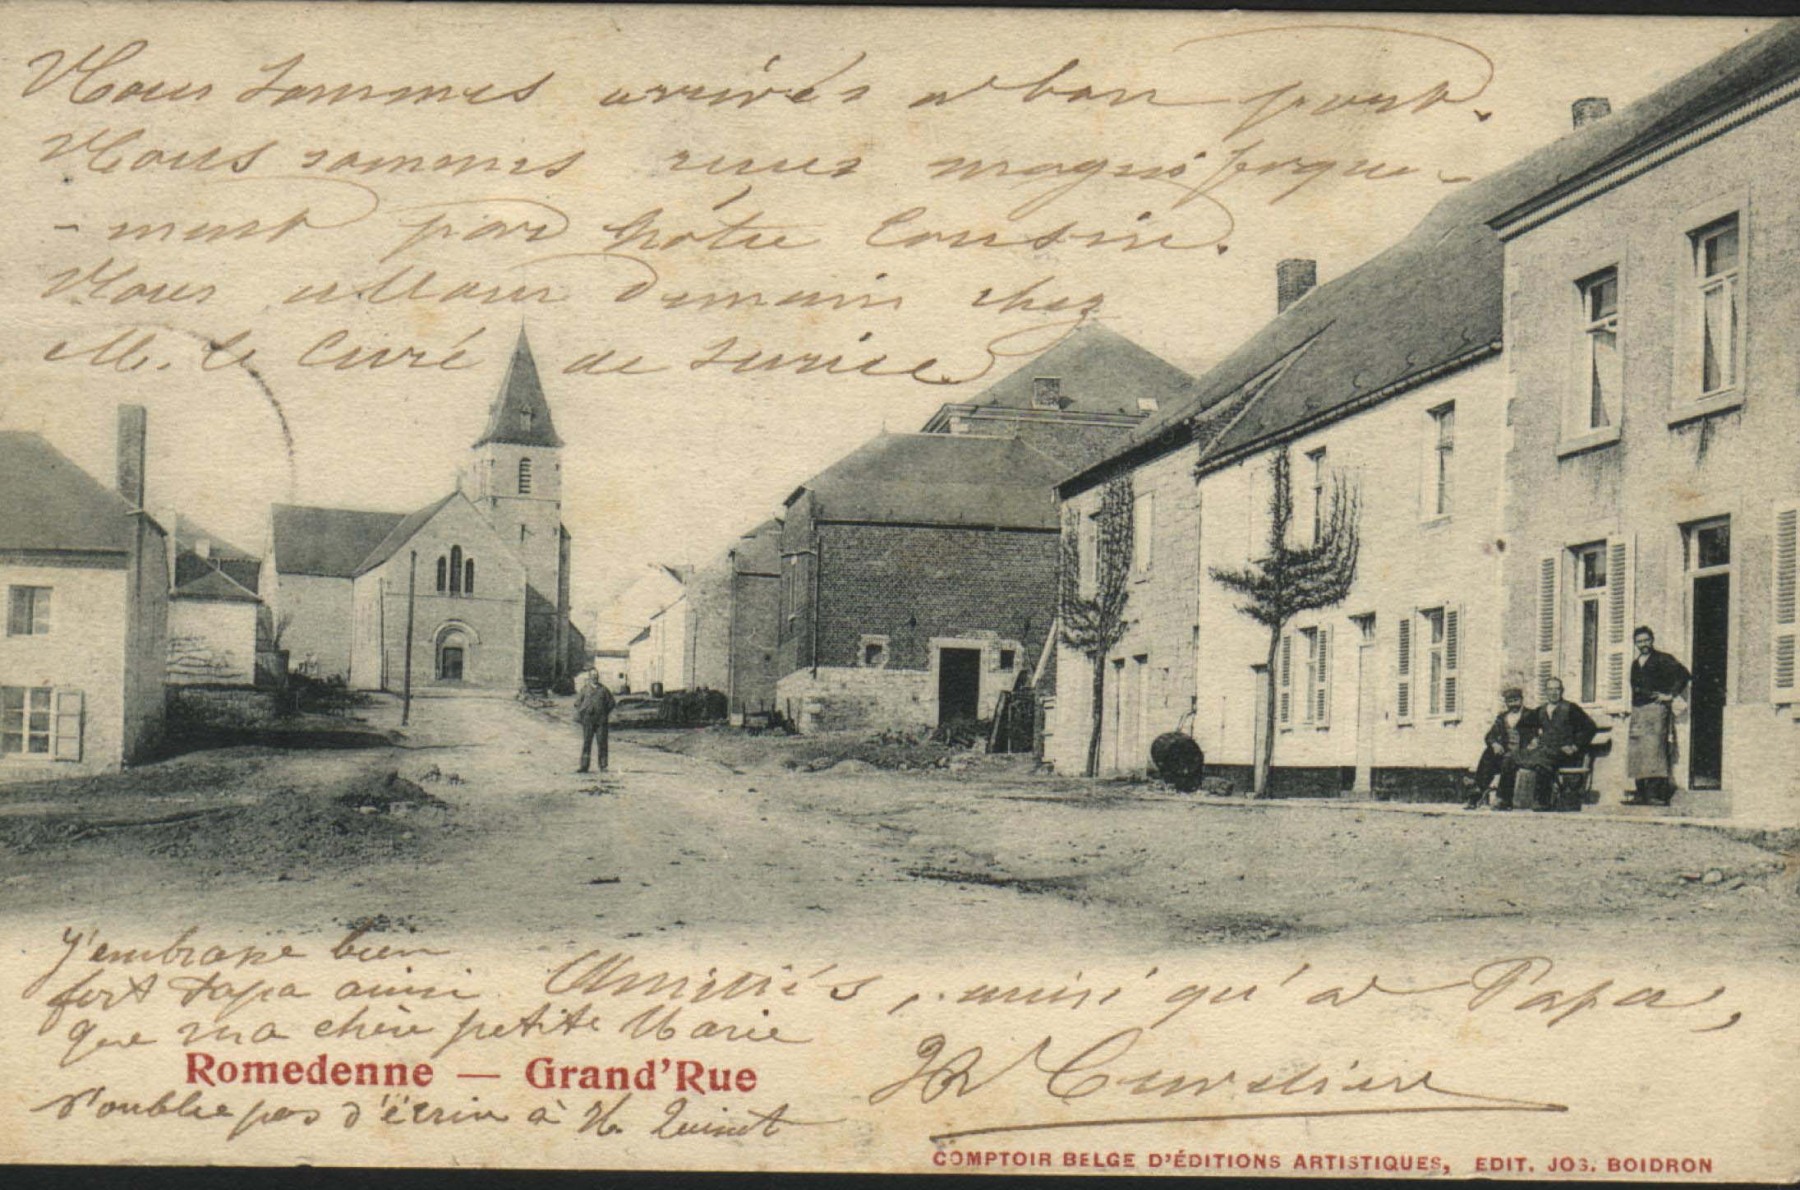 Nous sommes arrivés à bon port.
Nous sommes reçus magnifique-
-ment par notre Cousin.
Nous allons demain chez
M. le Curé de Surice
J'embrasse bien
fort Papa ainsi
que ma chère petite Marie
Amitiés, ainsi qu'à Papa,
Romedenne — Grand'Rue
N'oublie pas d'écrire à
COMPTOIR BELGE D'ÉDITIONS ARTISTIQUES, EDIT. JOS. BOIDRON